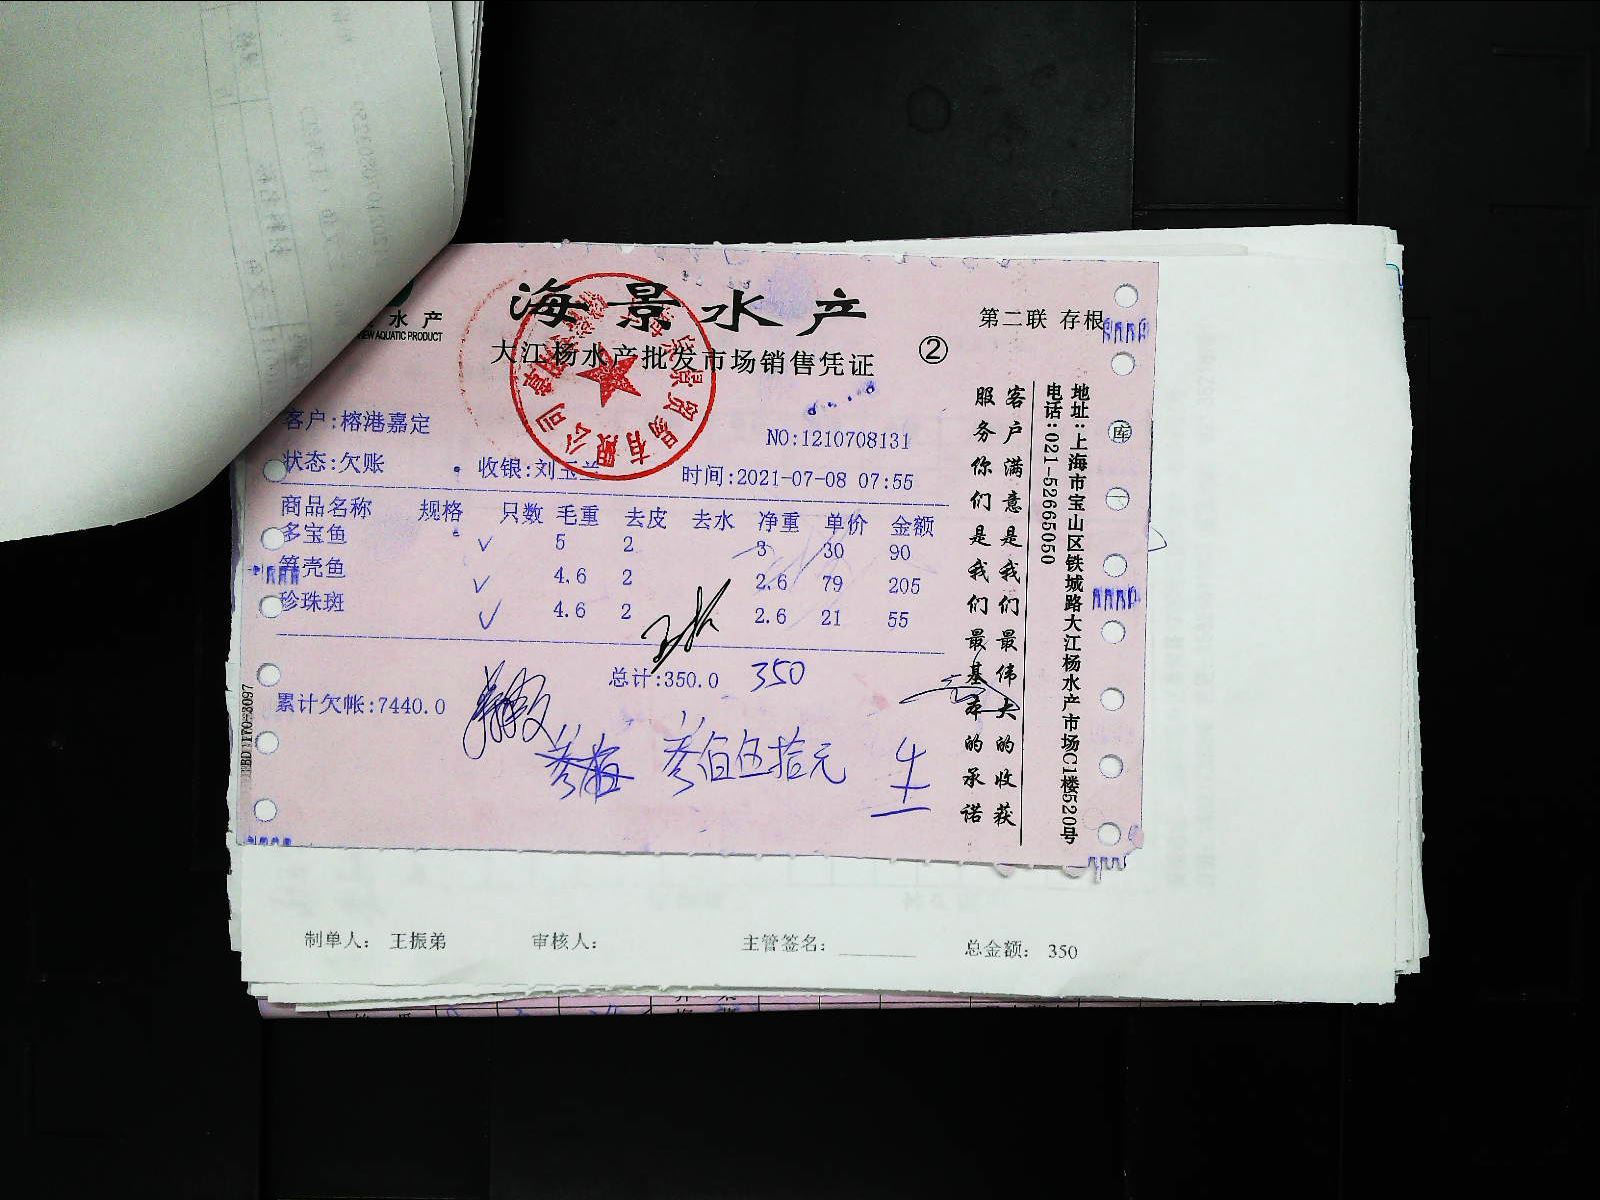 海景水产
水产
VIEW AQUATIC PRODUCT
大江杨水产批发市场销售凭证
②
第二联 存根
客户:榕港嘉定
NO:1210708131
状态:欠账
收银:刘玉兰
时间:2021-07-08 07:55
商品名称 规格 只数 毛重 去皮 去水 净重 单价 金额
多宝鱼 5 2 3 30 90
笋壳鱼 4.6 2 2.6 79 205
珍珠斑 4.6 2 2.6 21 55
总计:350.0 350
累计欠帐:7440.0
叁佰伍拾元
客户满意是我们最伟大的收获
服务你们是我们最基本的承诺
地址:上海市宝山区铁城路大江杨水产市场C1楼520号
电话:021-52665050
库
一
制单人: 王振弟 审核人: 主管签名: 总金额: 350